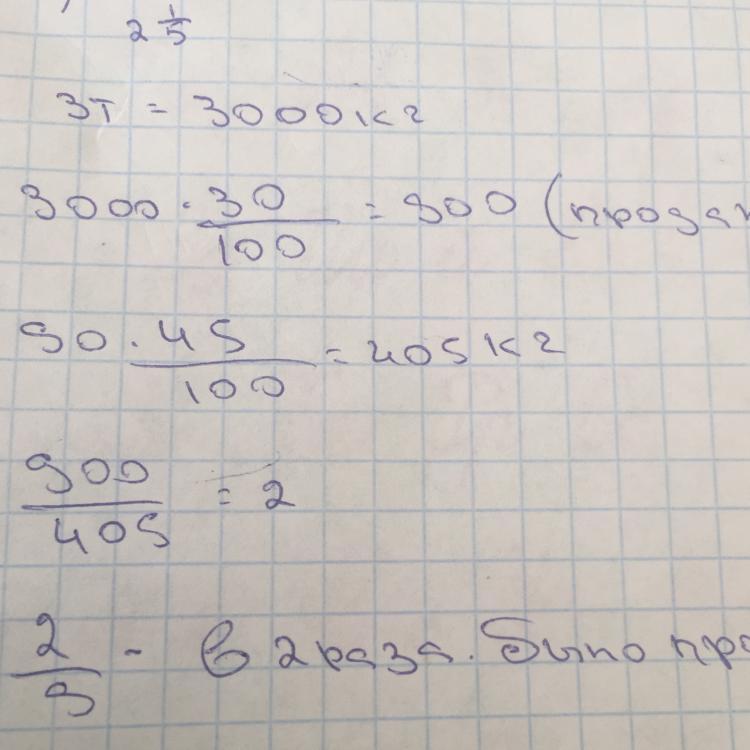 2 1/5
3т = 3000 кг
3000 · 30/100 = 900 (продан
90 · 45/100 = 405 кг
900/405 = 2
2/9 - в 2 раза. Было про